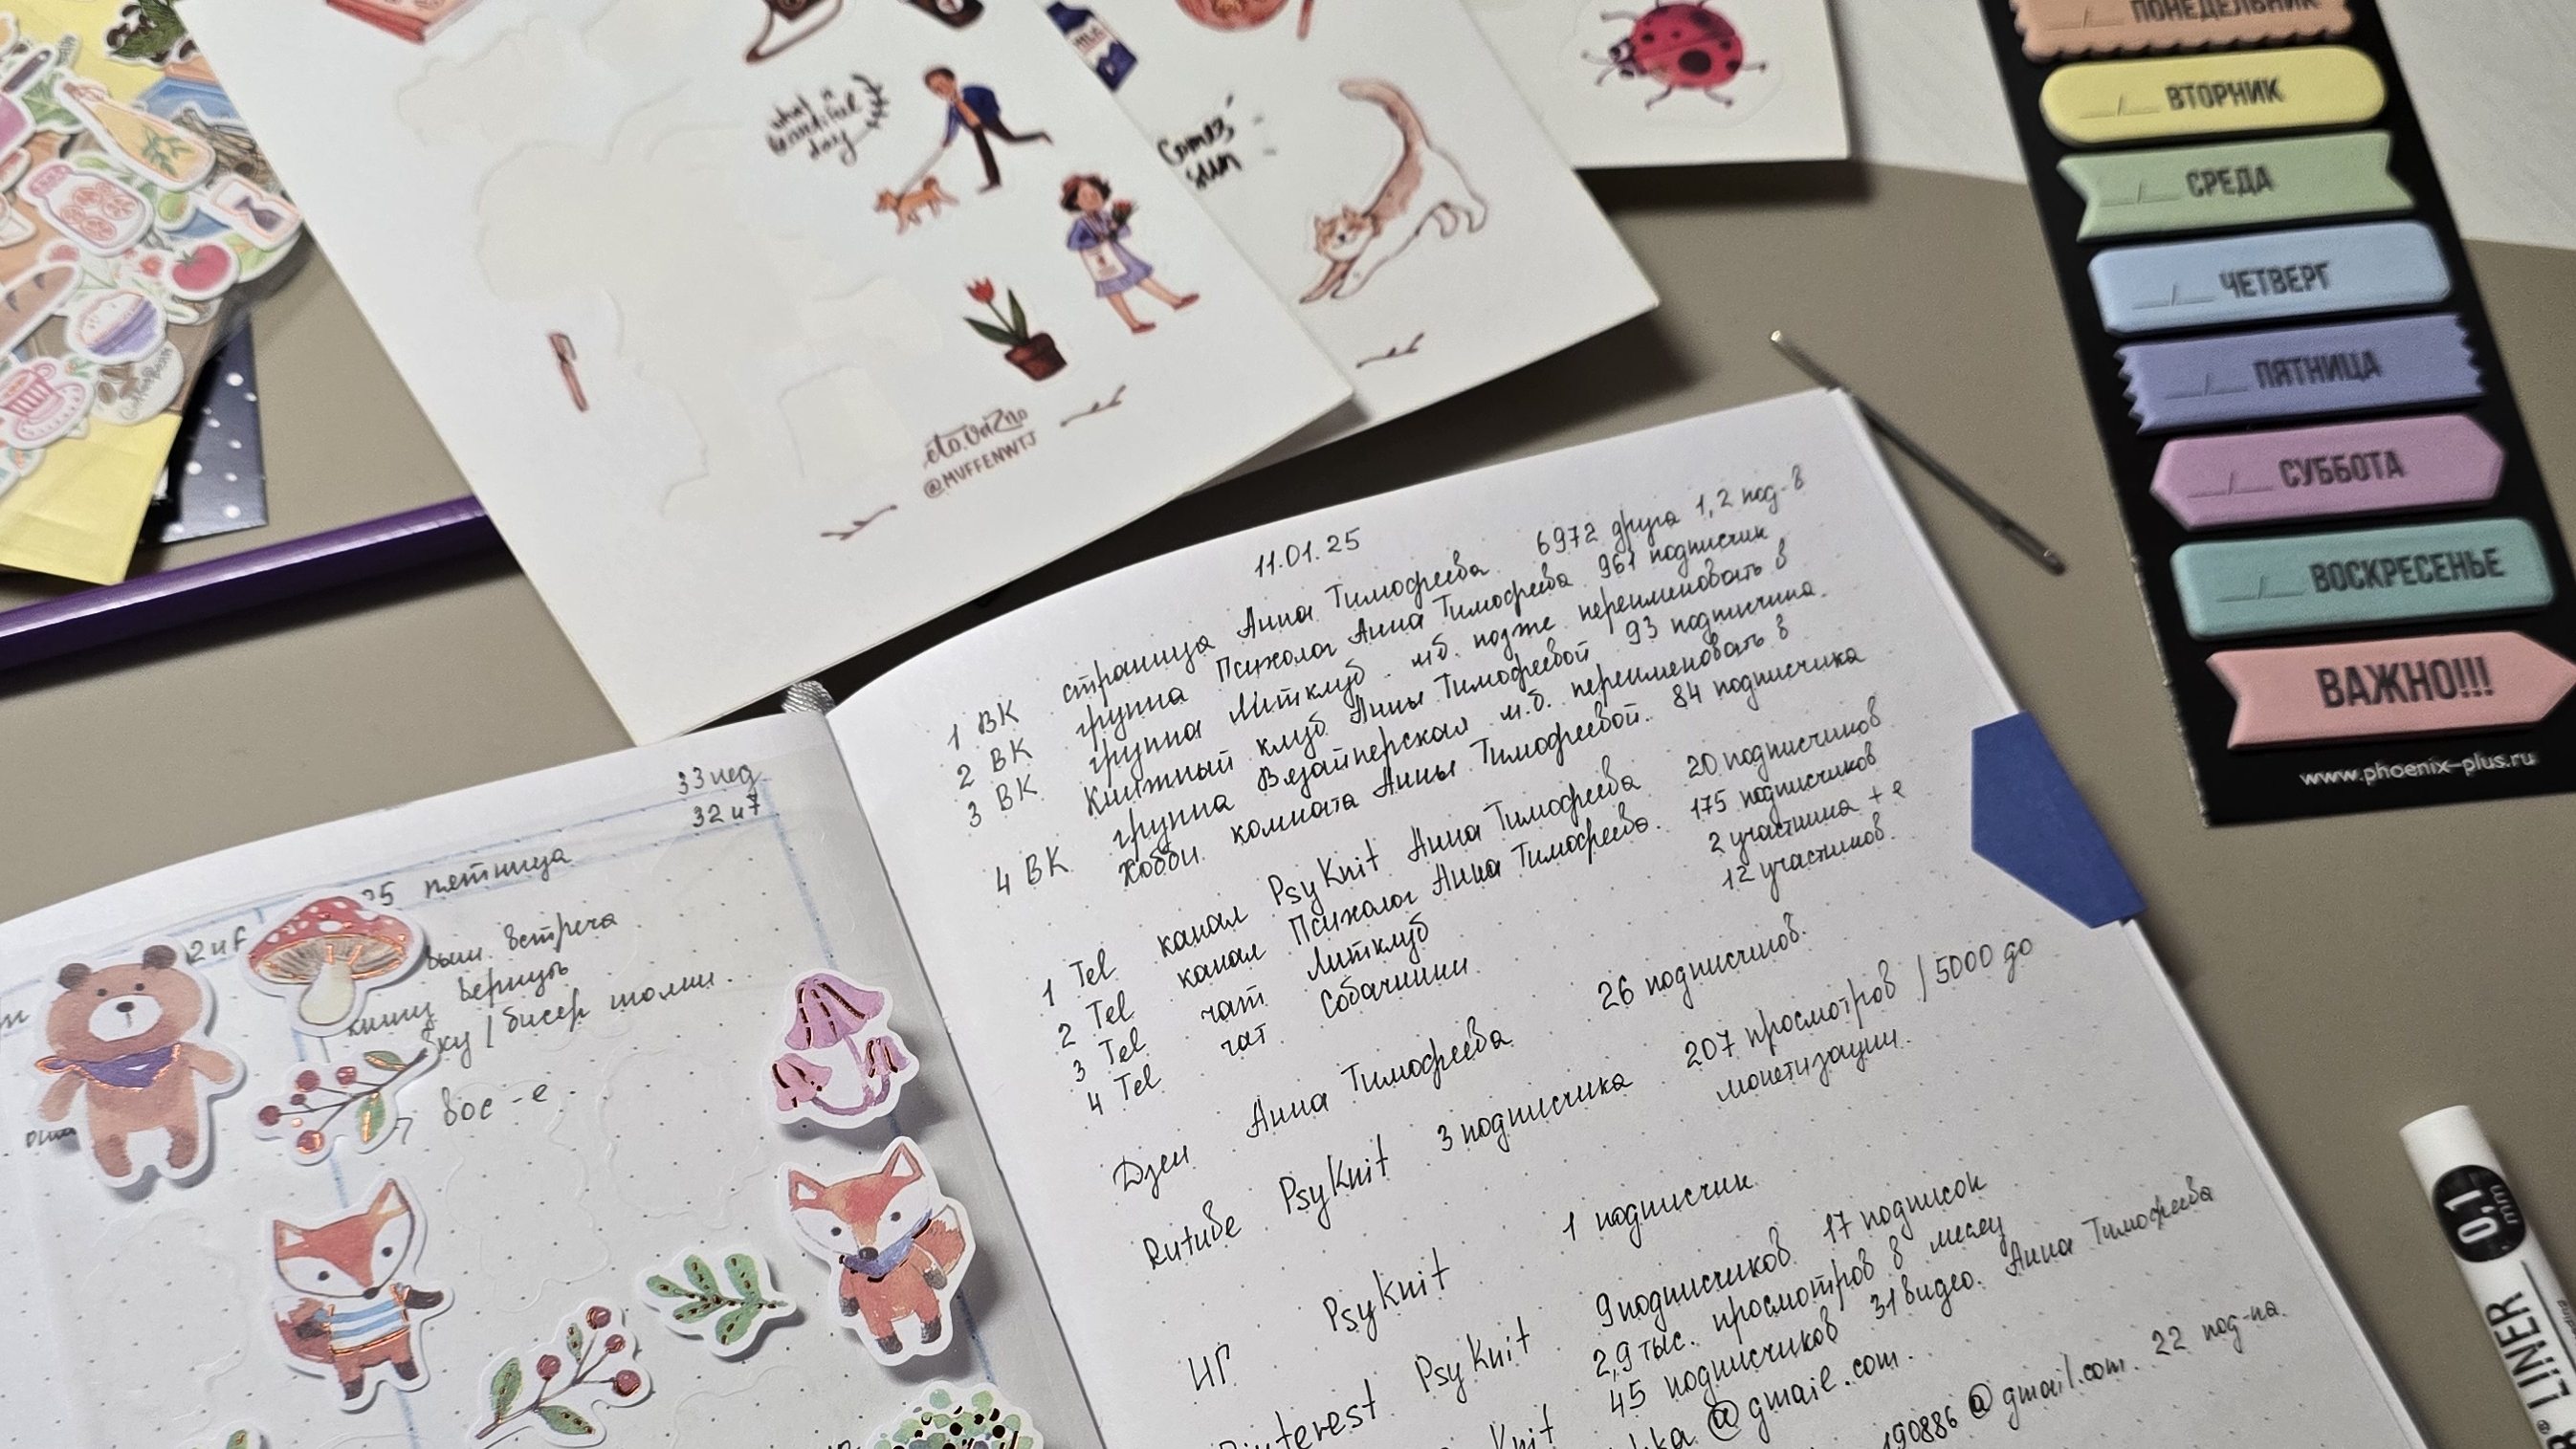 what a
beautiful
day
Comes
sun
eto.vazno
@MUFFENWTJ
CoffeeBean
ПОНЕДЕЛЬНИК
__/__ ВТОРНИК
__/__ СРЕДА
__/__ ЧЕТВЕРГ
__/__ ПЯТНИЦА
__/__ СУББОТА
__/__ ВОСКРЕСЕНЬЕ
ВАЖНО!!!
www.phoenix-plus.ru
33 нед
32 и7
25 пятница
2 и F
встреча
вернуть
бку / бисер
вос-е.
11.01.25
1 ВК страница Анна Тимофеева 6972 друга 1,2 под-в
2 ВК группа Психолог Анна Тимофеева 961 подписчик
3 ВК группа Литклуб м.б. позже переименовать в
Книжный клуб Анны Тимофеевой 93 подписчика.
4 ВК группа Вязайперская м.б. переименовать в
хобби комната Анны Тимофеевой. 84 подписчика
1 Tel канал PsyKnit Анна Тимофеева 20 подписчиков
2 Tel канал Психолог Анна Тимофеева. 175 подписчиков
3 Tel чат Литклуб 2 участника + е
4 Tel чат Собачники 12 участников.
Дзен Анна Тимофеева 26 подписчиков.
Rutube PsyKnit 3 подписчика 207 просмотров / 5000 до
монетизации.
ИГ PsyKnit 1 подписчик
Pinterest PsyKnit 9 подписчиков 17 подписок
2,9 тыс. просмотров в месяц
Knit 45 подписчиков 31 видео. Анна Тимофеева
@gmail.com.
190886@gmail.com. 22 под-ка.
0.1
mm
LINER